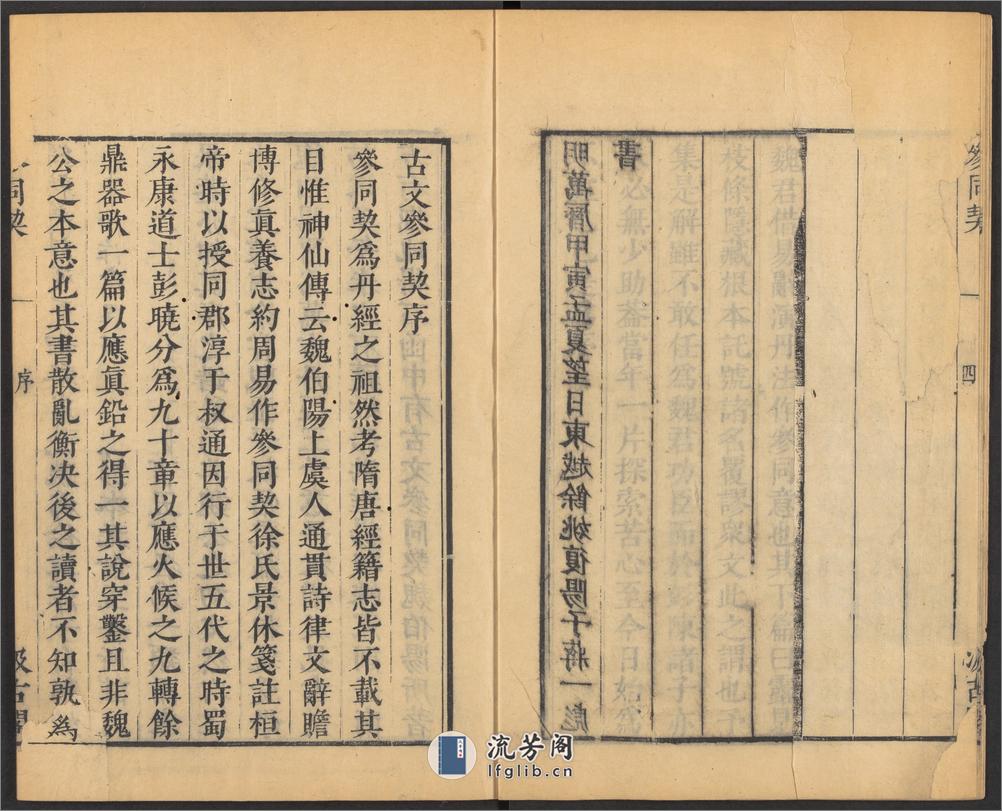 參同契
一
四
枝條隱藏根本託號諸名覆謬衆文此之謂也予
集是解雖不敢任爲魏君功臣而於彭陳諸子亦
必無少助葢當年一片探索苦心至今日始爲
書
明萬曆甲寅孟夏望日東越餘姚復陽子蔣一彪
古文參同契序
參同契爲丹經之祖然考隋唐經籍志皆不載其
目惟神仙傳云魏伯陽上虞人通貫詩律文辭贍
博修真養志約周易作參同契徐氏景休箋註桓
帝時以授同郡淳于叔通因行于世五代之時蜀
永康道士彭曉分爲九十章以應火候之九轉餘
鼎器歌一篇以應眞鉛之得一其說穿鑿且非魏
公之本意也其書散亂衡決後之讀者不知孰爲
同契
一
序
汲古閣
流芳阁
lfglib.cn